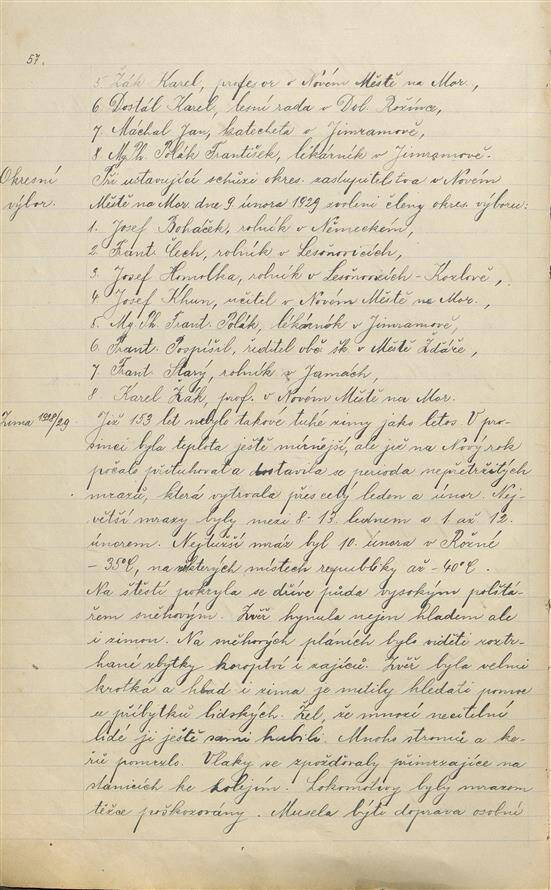 57.
5. Žák Karel, profesor v Novém Městě na Mor.,
6. Dostál Karel, lesní rada v Dol. Rožínce,
7. Máchal Jan, katecheta v Jimramově,
8. Mg. Ph. Polák František, lékárník v Jimramově.
Okresní výbor.
Při ustavující schůzi okres. zastupitelstva v Novém
Městě na Mor. dne 9. února 1929 zvoleni členy okres. výboru:
1. Josef Boháček, rolník v Německém,
2. Frant. Čech, rolník v Lesoňovicích,
3. Josef Homolka, rolník v Lesoňovicích - Kozlově,
4. Josef Khun, učitel v Novém Městě na Mor.,
5. Mg. Ph. Frant. Polák, lékárník v Jimramově,
6. Frant. Pospíšil, ředitel obč. šk. v Městě Žďáře,
7. Frant. Starý, rolník v Jamách,
8. Karel Žák, prof. v Novém Městě na Mor.
Zima 1928/29
Již 153 let nebylo takové tuhé zimy jako letos. V pro-
sinci byla teplota ještě mírnější, ale již na Nový rok
počalo přituhovat a dostavila se perioda nepřetržitých
mrazů, která vytrvala přes celý leden a únor. Nej-
větší mrazy byly mezi 8. 13. lednem a 1. až 12.
únorem. Nejtužší mráz byl 10. února v Rožné
- 35°C, na některých místech republiky až - 40°C.
Na štěstí pokryla se dříve půda vysokým polštá-
řem sněhovým. Zvěř hynula nejen hladem ale
i zimou. Na sněhových pláních bylo viděti roztr-
hané zbytky koroptví i zajíců. Zvěř byla velmi
krotká a hlad i zima je nutily hledati pomoc
u příbytků lidských. Žel, že mnozí necitelní
lidé ji ještě sami hubili. Mnoho stromů a ke-
řů pomrzlo. Vlaky se zpožďovaly přimrzajíce na
stanicích ke kolejím. Lokomotivy byly mrazem
těžce poškozovány. Musela býti doprava osobní